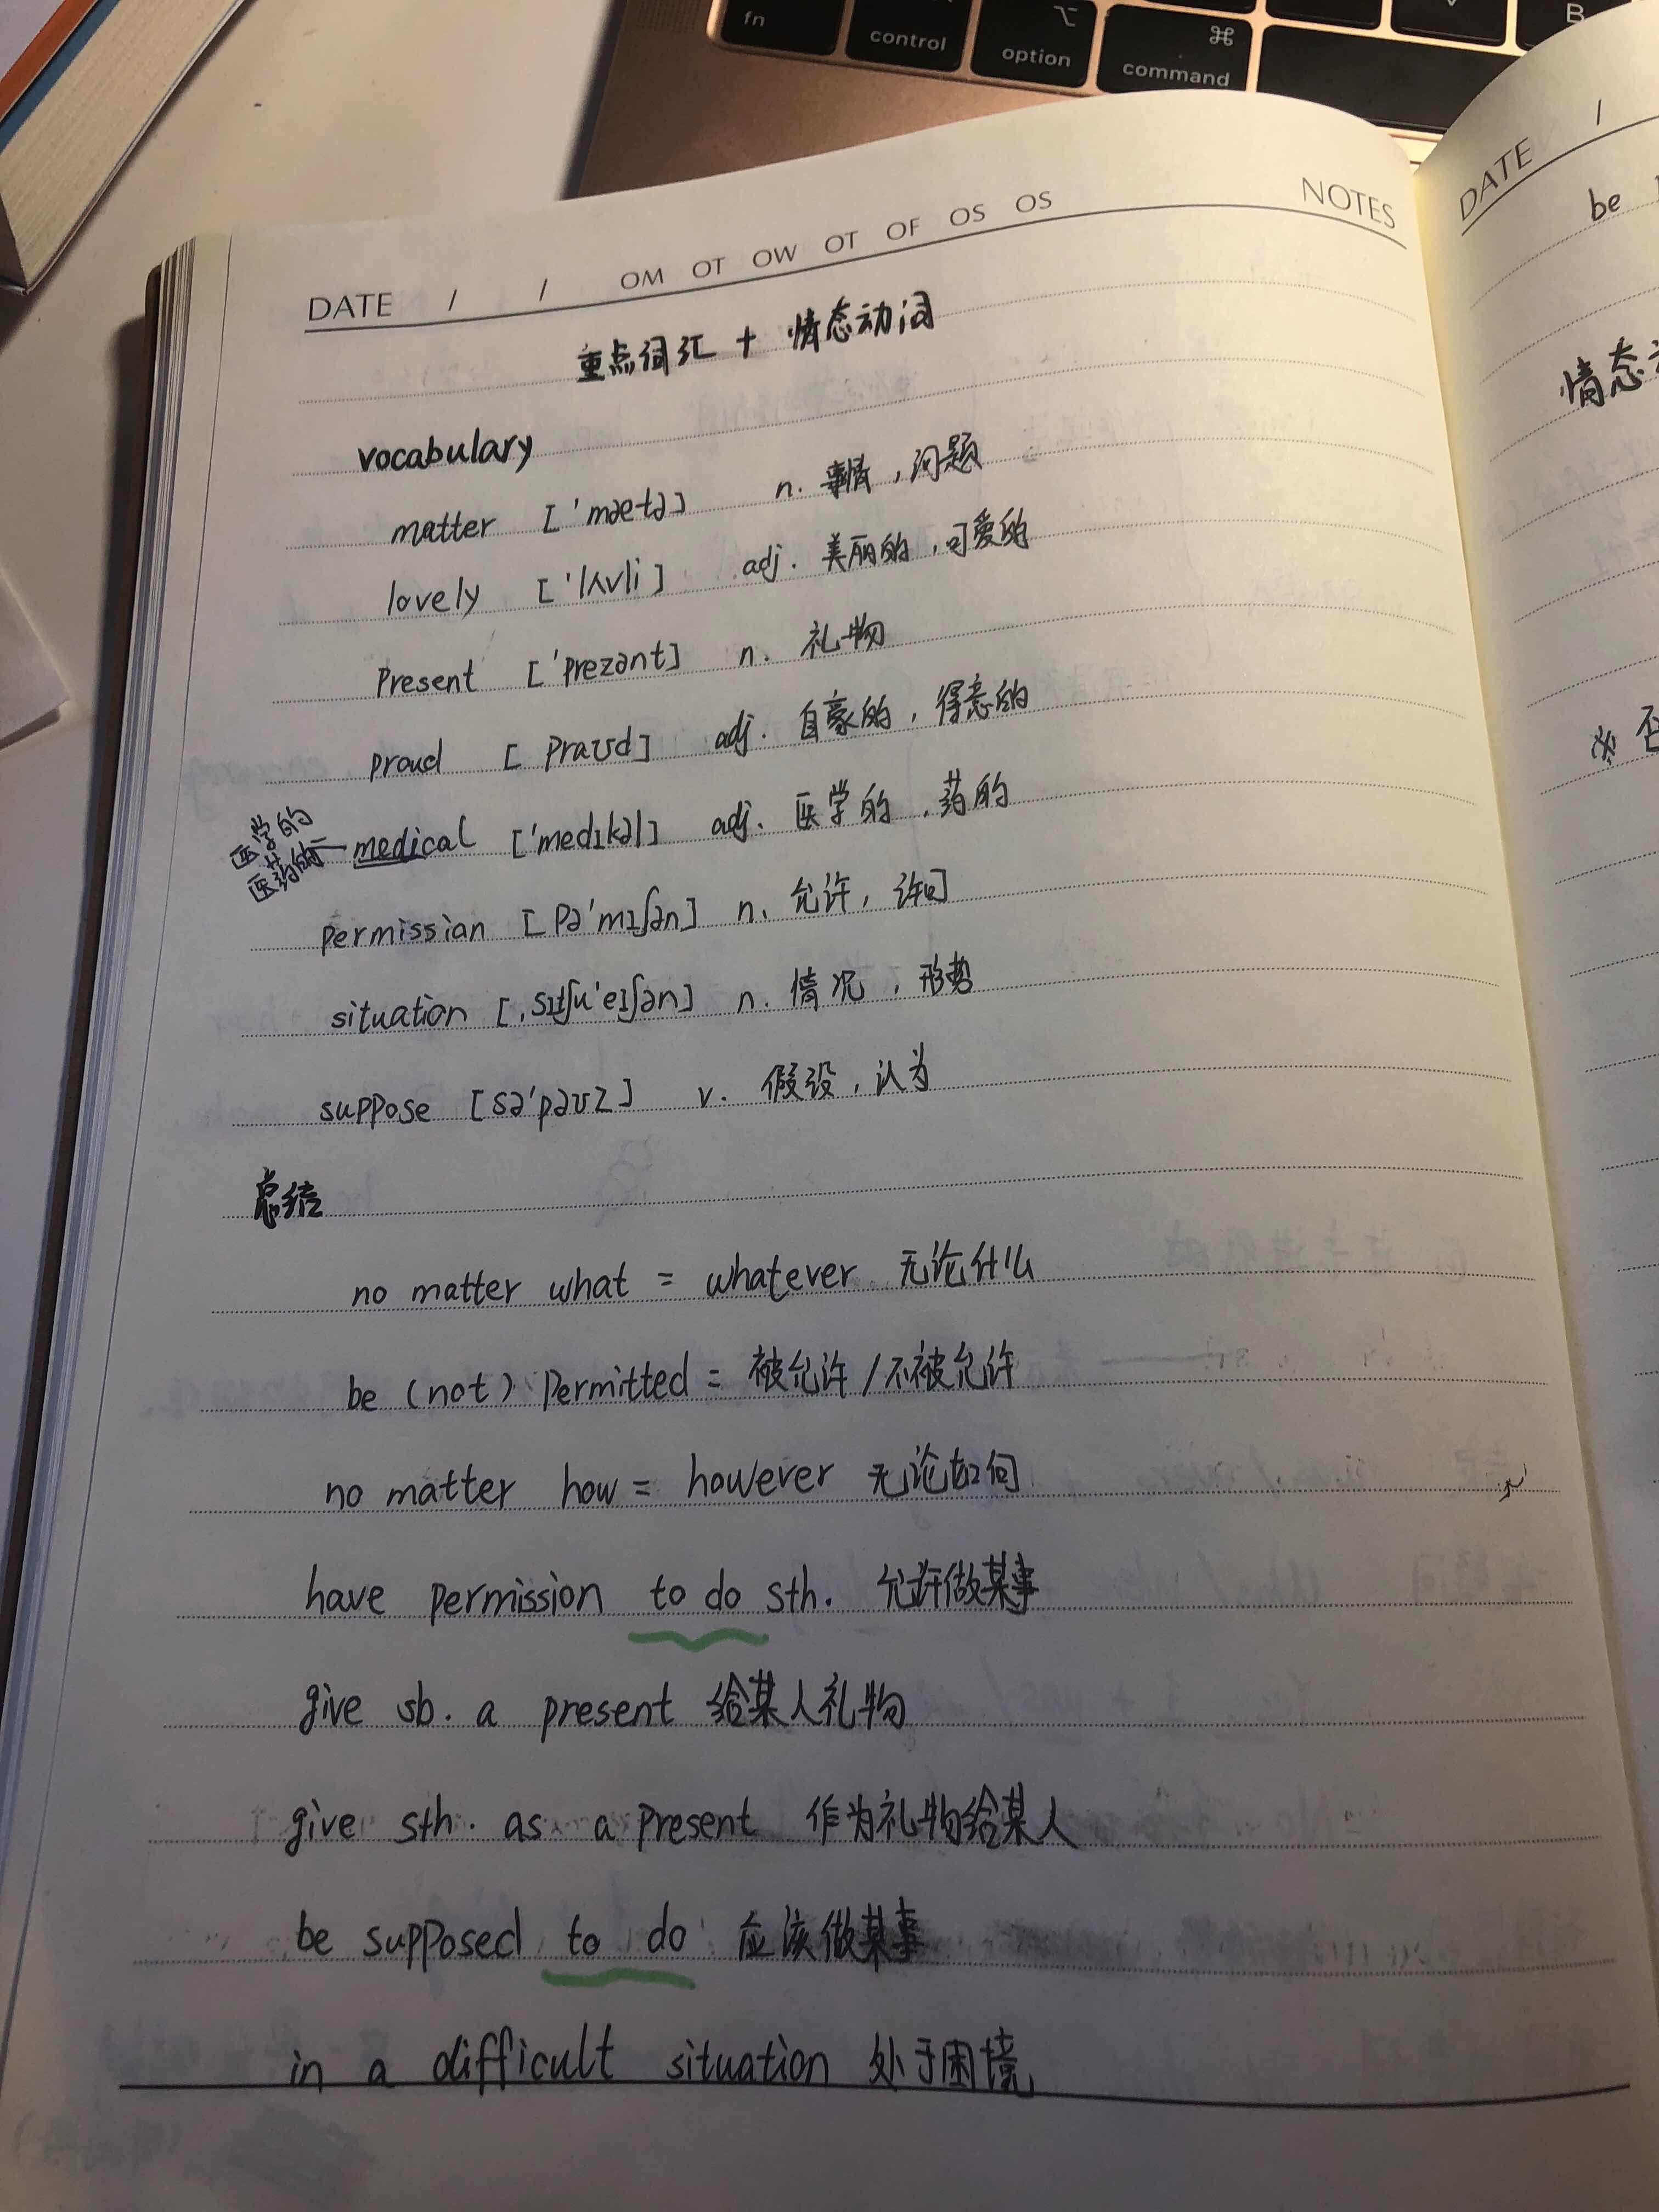 fn
control
⌥
option
⌘
command
B
DATE / / OM OT OW OT OF OS OS NOTES
重点词汇 + 情态动词
vocabulary
matter ['mætə] n. 事情，问题
lovely ['lʌvli] adj. 美丽的，可爱的
Present ['prezənt] n. 礼物
proud [praʊd] adj. 自豪的，得意的
医学的
医药的
medical ['medɪkəl] adj. 医学的，药的
permission [pə'mɪʃən] n. 允许，许可
situation [ˌsɪtʃu'eɪʃən] n. 情况，形势
suppose [sə'pəʊz] v. 假设，认为
总结
no matter what = whatever 无论什么
be (not) Permitted = 被允许/不被允许
no matter how = however 无论如何
have permission to do sth. 允许做某事
give sb. a present 给某人礼物
give sth. as a present 作为礼物给某人
be supposed to do 应该做某事
in a difficult situation 处于困境
DATE /
be
情态
※ 否